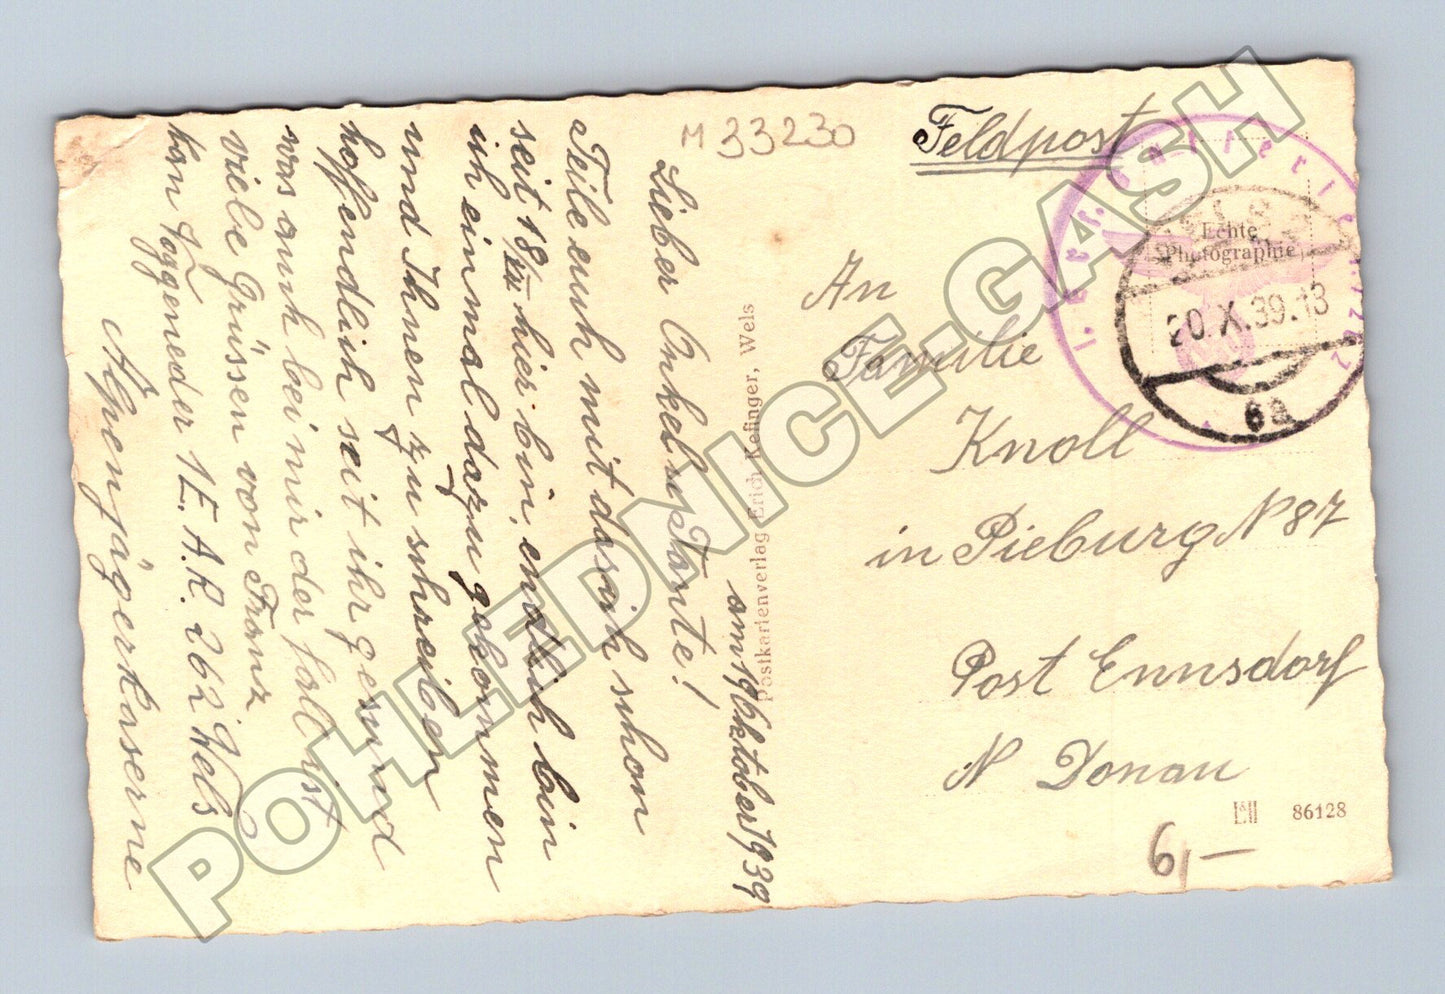 M 33230
Feldpost
Echte
Photographie
20.X.39.13
6a
An
Familie
Knoll
in Pieburg N 87
Post Ennsdorf
N Donau
86128
6,—
Postkartenverlag Erich Kefinger, Wels
am 19 Oktober 1939
Lieber Onkel u. Tante!
Teile euch mit das ich schon
seit 18/ hier bin, endlich bin
ich einmal dazu gekommen
und Ihnen zu schreiben
hoffendlich seit ihr gesund
was auch bei mir der fall ist
viele Grüssen von Franz
Kan Toggeneder 1 E.A.R. 262 Wels
Alpenjägerkaserne
POHLEDNICE-GASH